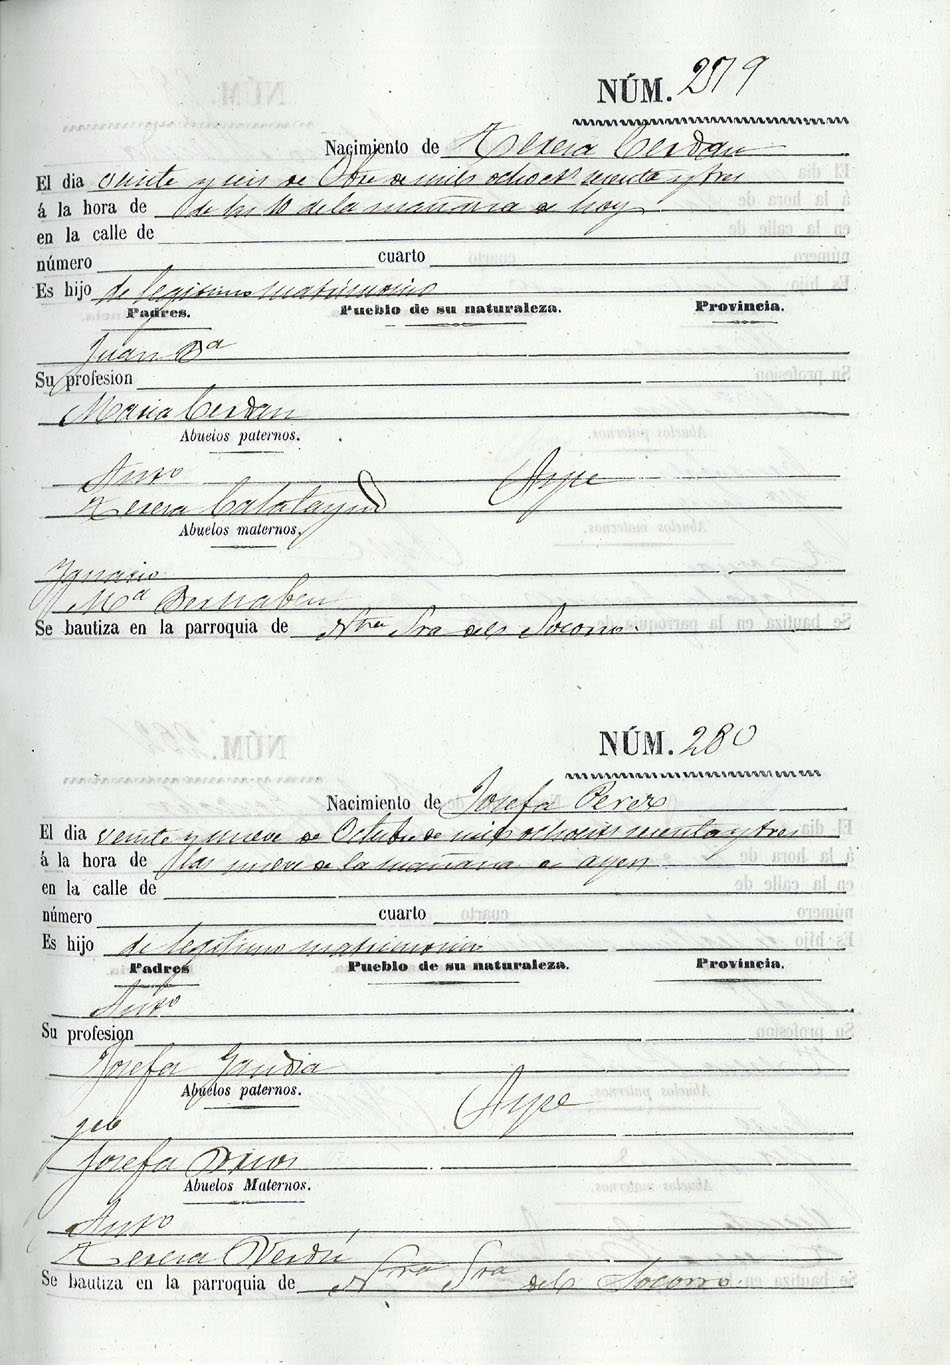 NÚM. 279
Nacimiento de Teresa Cerdan
El dia veinte y seis de Obre de mil ochocs sesenta y tres
á la hora de de las 10 de la mañana de hoy
en la calle de
número cuarto
Es hijo de legitimo matrimonio
Padres. Pueblo de su naturaleza. Provincia.
Juan
Su profesion
Maria Cerdan
Abuelos paternos.
Anto Aspe
Teresa Calatayud
Abuelos maternos,
Ygnacio
Ma Bernabeu
Se bautiza en la parroquia de Ntra Sra del Socorro.
NÚM. 280
Nacimiento de Josefa Perez
El dia veinte y nueve de Octubre de mil ochocis sesenta y tres
á la hora de las nueve de la mañana de ayer
en la calle de
número cuarto
Es hijo de legitimo matrimonio
Padres Pueblo de su naturaleza. Provincia.
Anto
Su profesion
Josefa Gandia
Abuelos paternos.
Aspe
Josefa
Abuelos Maternos.
Anto
Teresa Verdú
Se bautiza en la parroquia de Ntra Sra del Socorro.